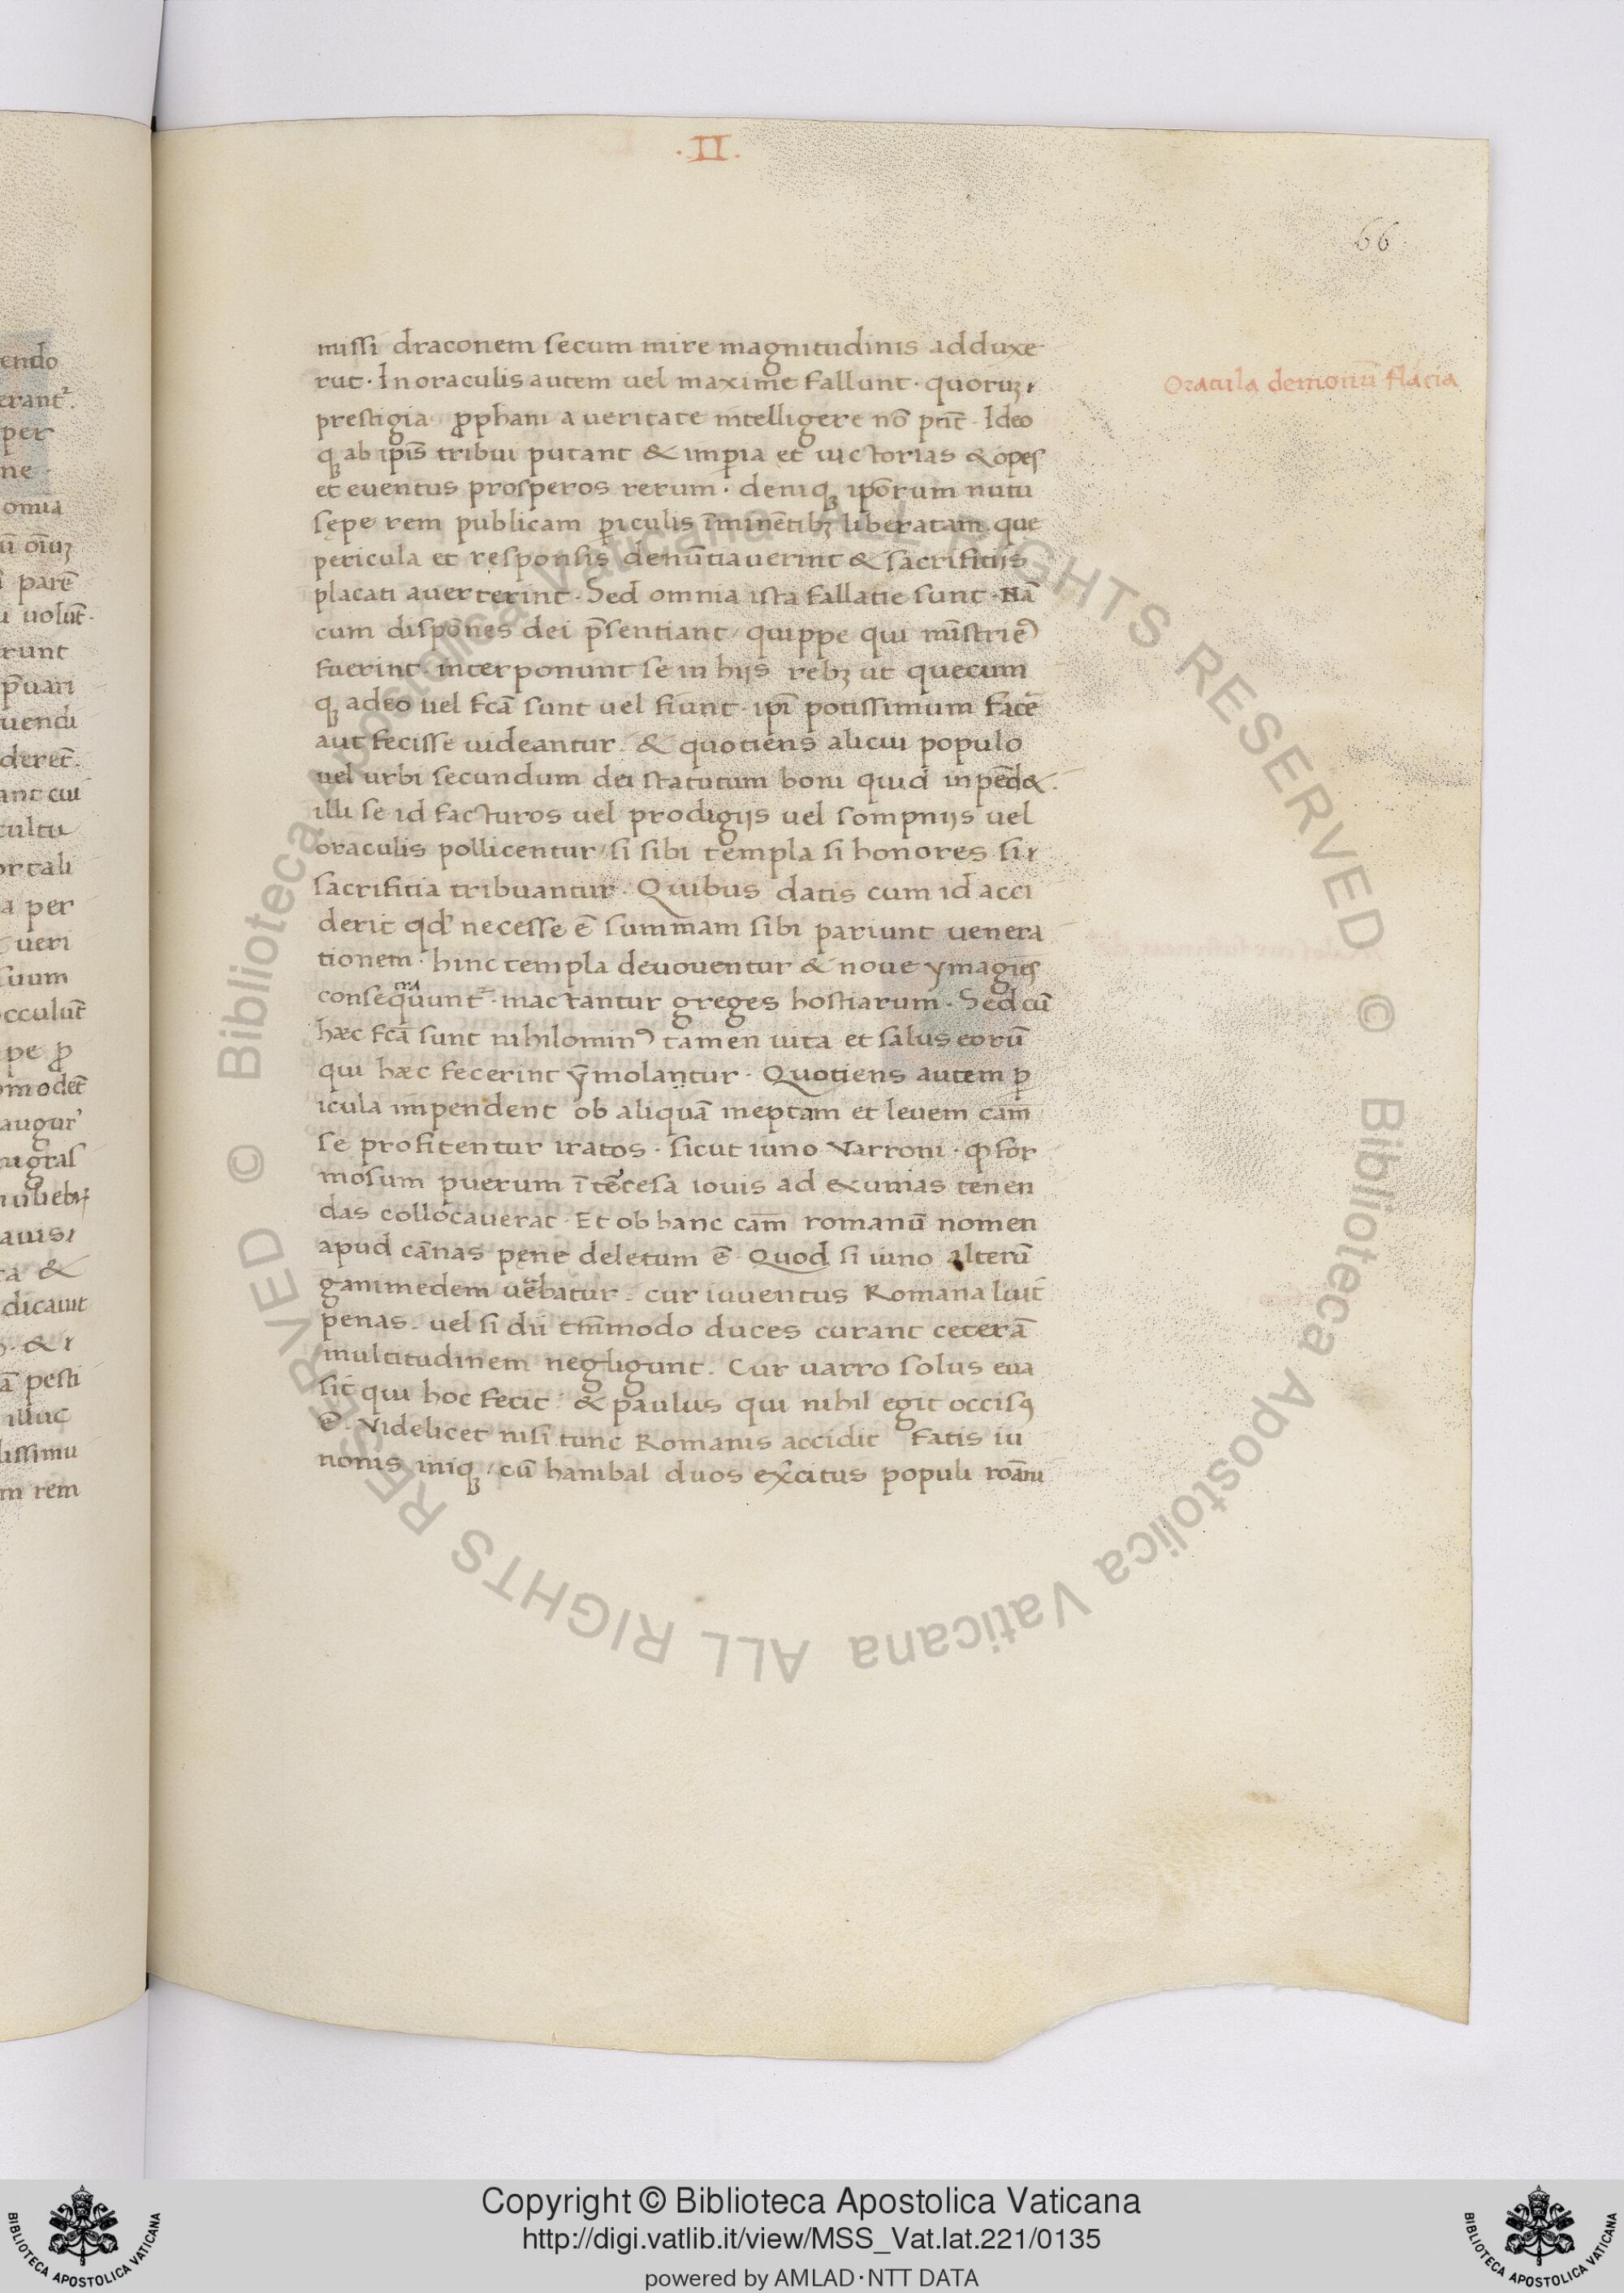 ·II·
66
missi draconem secum mire magnitudinis adduxe
rut · In oraculis autem uel maxime fallunt · quoruꝫ
Oracula demoniū
prestigia ꝓphani a ueritate intelligere nō pñt · Ideo
qꝫ ab ipīs tribui putant & imꝑia et uictorias & opes
et euentus prosperos rerum · deniqꝫ ipōrum nutu
sępe rem publicam ꝑiculis īminētibꝫ liberatam que
pericula et responsis denūtiauerint & sacrifitiis
placati auerterint · Sed omnia ista fallatie sunt · Nā
cum dispōnes dei p̄sentiant / quippe qui
fuerint · interponunt se in hijs rebꝫ ut quecum
qꝫ adeo uel fcā sunt uel fiunt · ipī potissimum facē
aut fecisse uideantur · & quotiens alicui populo
uel urbi secundum dei statutum boni quid inpēd& ·
illi se id facturos uel prodigijs uel sompnijs uel
oraculis pollicentur / si sibi templa si honores si
sacrifitia tribuantur · Quibus datis cum id acci
derit qd' necesse ē summam sibi pariunt uenera
tionem · hinc templa deuouentur & noue ymagīes
mactantur greges hostiarum · Sed cū
hæc fcā sunt nihilominꝰ tamen uita et salus eorū
qui hæc fecerint ȳmolantur · Quotiens autem ꝑ
icula impendent ob aliquā ineptam et leuem cām
se profitentur iratos · sicut iuno Varroni · ꝙ for
mosum puerum ī iouis ad exuuias tenen
das collocauerat · Et ob hanc cām romanū nomen
apud cānas pęne deletum ē · Quod si iuno alterū
ganimedem cur iuuentus Romana luit
penas · uel si dii tm̄modo duces curant ceterā
multitudinem negligunt · Cur uarro solus eua
sit qui hoc fecit · & paulus qui nihil egit occisꝰ
ē · Videlicet nisi tunc Romanis accidit fatis iu
nonis iniqꝫ / cū hanibal duos ex̄citus populi roāni
Copyright © Biblioteca Apostolica Vaticana
http://digi.vatlib.it/view/MSS_Vat.lat.221/0135
powered by AMLAD·NTT DATA
BIBLIOTECA APOSTOLICA VATICANA
BIBLIOTECA APOSTOLICA VATICANA
© Biblioteca Apostolica Vaticana ALL RIGHTS RESERVED © Biblioteca Apostolica Vaticana ALL RIGHTS RESERVED